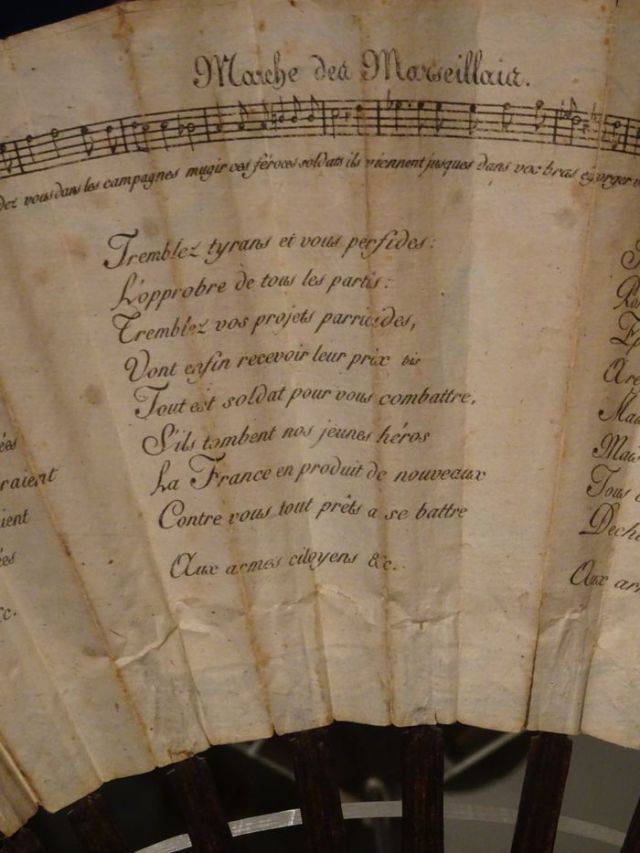 Marche des Marseillais.
dez vous dans les campagnes mugir ces féroces soldats ils viennent jusques dans vox bras égorger v
Tremblez tyrans et vous perfides:
L'opprobre de tous les partis:
Tremblez vos projets parricides,
Vont enfin recevoir leur prix bis
Tout est soldat pour vous combattre,
S'ils tombent nos jeunes héros
La France en produit de nouveaux
Contre vous tout prêts a se battre
Aux armes citoyens &c.
ées
raient
ient
ées
&c.
Are
Mal
Mais
Tous
Dech
Aux arm